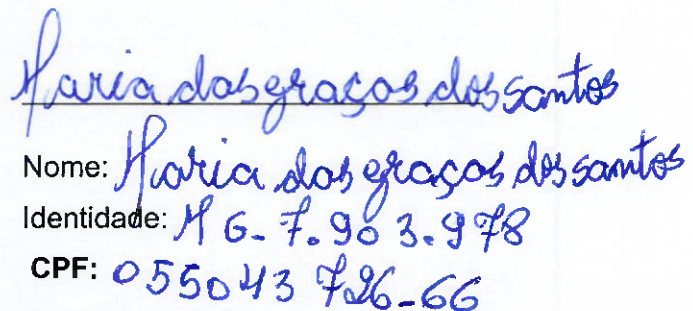 Maria das graças dos santos
Nome: Maria das graças dos santos
Identidade: MG-7.903.978
CPF: 055043726-66